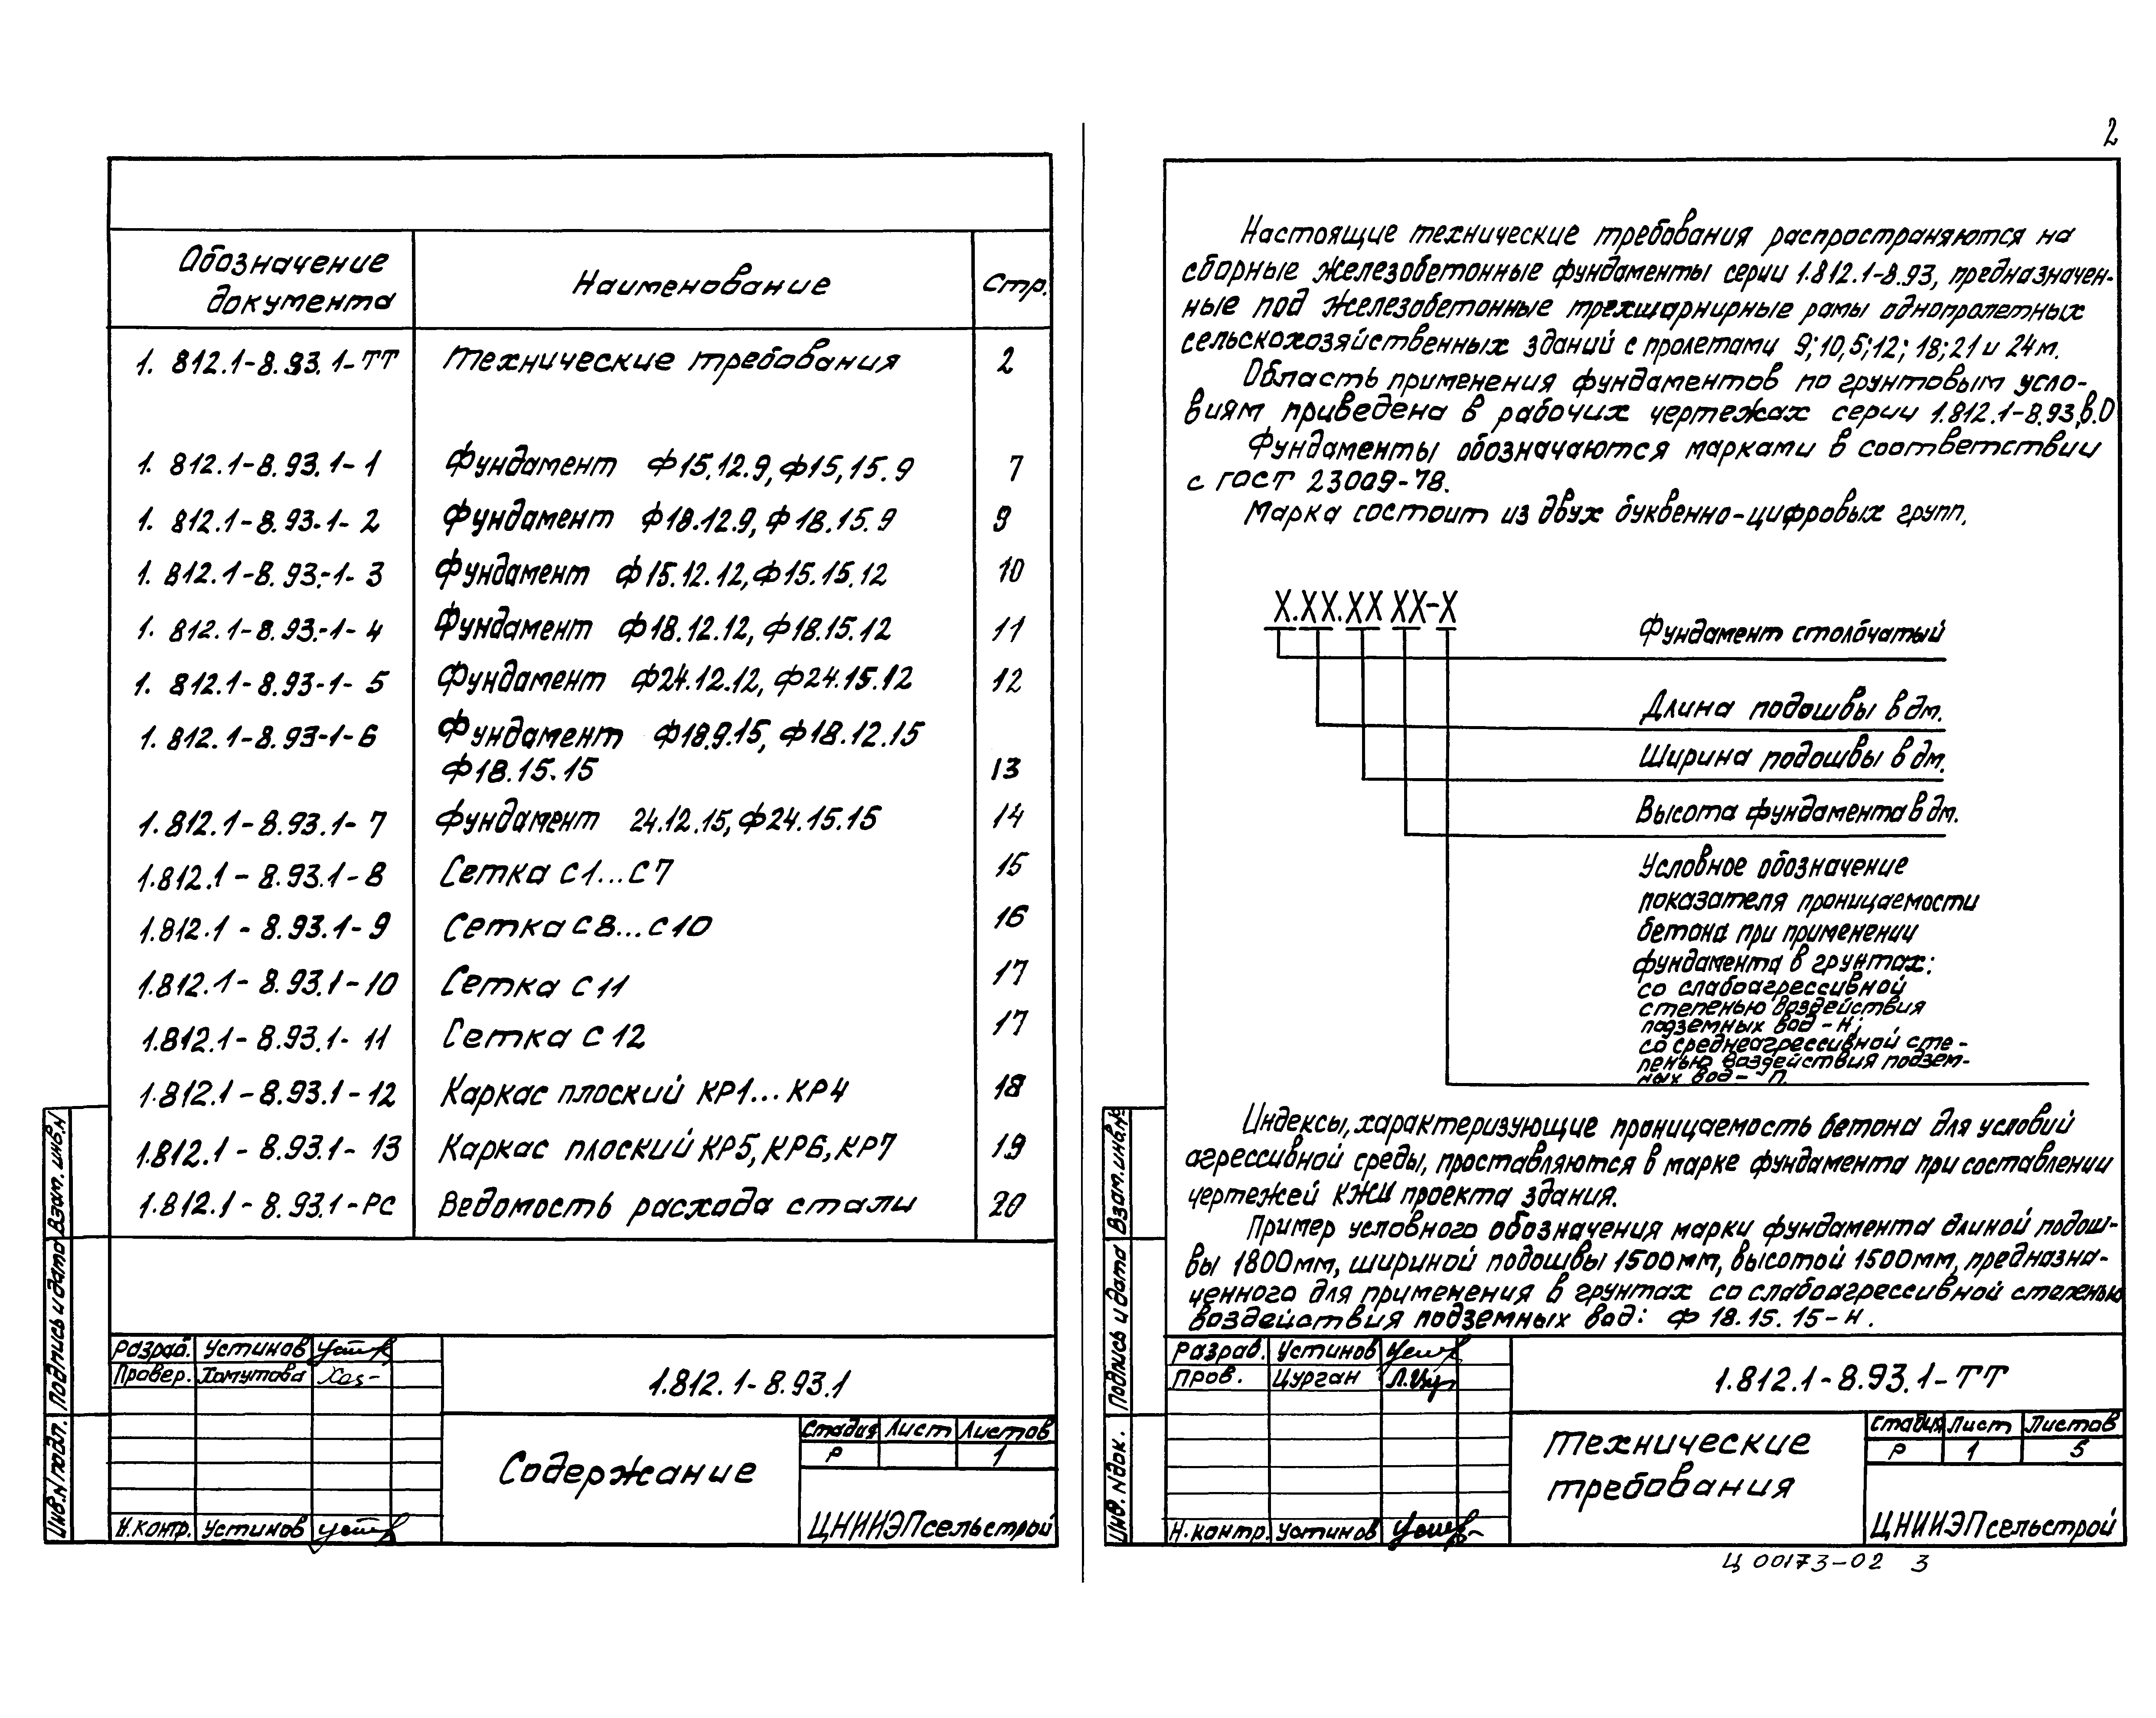 Обозначение документа Наименование Стр.
1. 812.1-8.93. 1-ТТ Технические требования 2
1. 812.1-8.93.1-1 Фундамент Ф15.12.9, Ф15,15.9 7
1. 812.1-8.93-1-2 Фундамент Ф18.12.9, Ф18.15.9 9
1. 812.1-8.93.-1-3 Фундамент Ф15.12.12, Ф15.15.12 10
1. 812.1-8.93.-1-4 Фундамент Ф18.12.12, Ф18.15.12 11
1. 812.1-8.93-1-5 Фундамент Ф24.12.12, Ф24.15.12 12
1. 812.1-8.93-1-6 Фундамент Ф18.9.15, Ф18.12.15
Ф18.15.15 13
1.812.1-8.93.1-7 Фундамент 24.12.15, Ф24.15.15 14
1.812.1-8.93.1-8 Сетка С1...С7 15
1.812.1-8.93.1-9 Сетка С8...С10 16
1.812.1-8.93.1-10 Сетка С11 17
1.812.1-8.93.1-11 Сетка С12 17
1.812.1-8.93.1-12 Каркас плоский КР1...КР4 18
1.812.1-8.93.1-13 Каркас плоский КР5, КР6, КР7 19
1.812.1-8.93.1-РС Ведомость расхода стали 20
Взам. инв.N
Подпись и дата
Инв.N подл.
Разраб. Устинов
Провер. Хомутова
Н.контр. Устинов
1.812.1-8.93.1
Содержание
Стадия Лист Листов
Р 1
ЦНИИЭПсельстрой
2
Настоящие технические требования распространяются на
сборные железобетонные фундаменты серии 1.812.1-8.93, предназначен-
ные под железобетонные трехшарнирные рамы однопролетных
сельскохозяйственных зданий с пролетами 9; 10,5; 12; 18; 21 и 24м.
Область применения фундаментов по грунтовым усло-
виям приведена в рабочих чертежах серии 1.812.1-8.93, в.0
Фундаменты обозначаются марками в соответствии
с ГОСТ 23009-78.
Марка состоит из двух буквенно-цифровых групп.
X.XX.XX XX-X
Фундамент столбчатый
Длина подошвы в дм.
Ширина подошвы в дм.
Высота фундамента в дм.
Условное обозначение
показателя проницаемости
бетона при применении
фундамента в грунтах:
со слабоагрессивной
степенью воздействия
подземных вод - Н;
со среднеагрессивной сте-
пенью воздействия подзем-
ных вод - П.
Индексы, характеризующие проницаемость бетона для условий
агрессивной среды, проставляются в марке фундамента при составлении
чертежей КЖИ проекта здания.
Пример условного обозначения марки фундамента длиной подош-
вы 1800мм, шириной подошвы 1500мм, высотой 1500мм, предназна-
ченного для применения в грунтах со слабоагрессивной степенью
воздействия подземных вод: Ф 18.15.15-Н.
Взам.инв.N
Подпись и дата
Инв. N док.
Разраб. Устинов
Пров. Цурган
Н.контр. Устинов
1.812.1-8.93.1-ТТ
Технические
требования
Стадия Лист Листов
Р 1 5
ЦНИИЭПсельстрой
Ц 00173-02 3